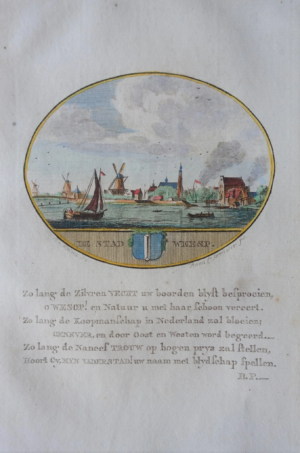 DE STAD WEESP.
Zo lang de Zilvren VECHT uw boorden blyft besproeien,
o WEESOP! en Natuur u met haar schoon vereert.
Zo lang de Koopmanschap in Nederland zal bloeien;
GENEVER, en door Oost en Westen word begeerd...
Zo lang de Naneef TROUW op hogen prys zal stellen,
Hoort Gy, MYN VADERSTAD! uw naam met blydschap spellen.